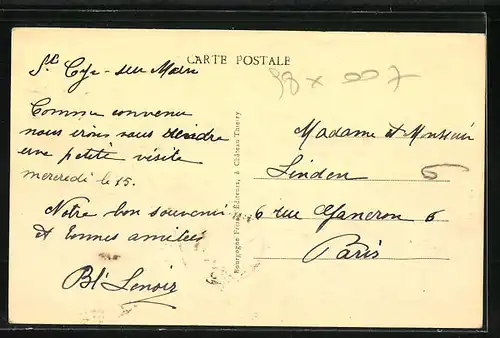 CARTE POSTALE
St Cyr-sur-Morin
98 x 007
Comme convenu
nous irons vous rendre
une petite visite
mercredi le 15.
Notre bon souvenir
et bonnes amitiés
Bl Lenoir
Bourgogne Frères, Éditeurs, à Château-Thierry
Madame et Monsieur
Linden
6 rue 6
Paris